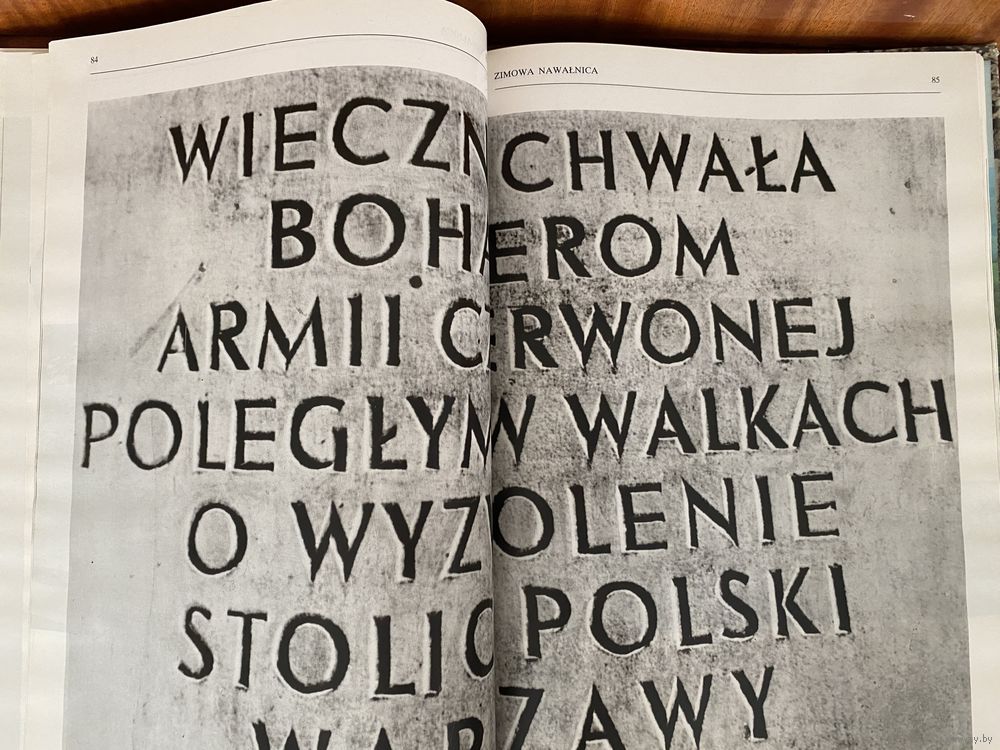 84
ZIMOWA NAWAŁNICA
85
WIECZN CHWAŁA
BOHATEROM
ARMII CZERWONEJ
POLEGŁYM W WALKACH
O WYZWOLENIE
STOLICY POLSKI
WARSZAWY